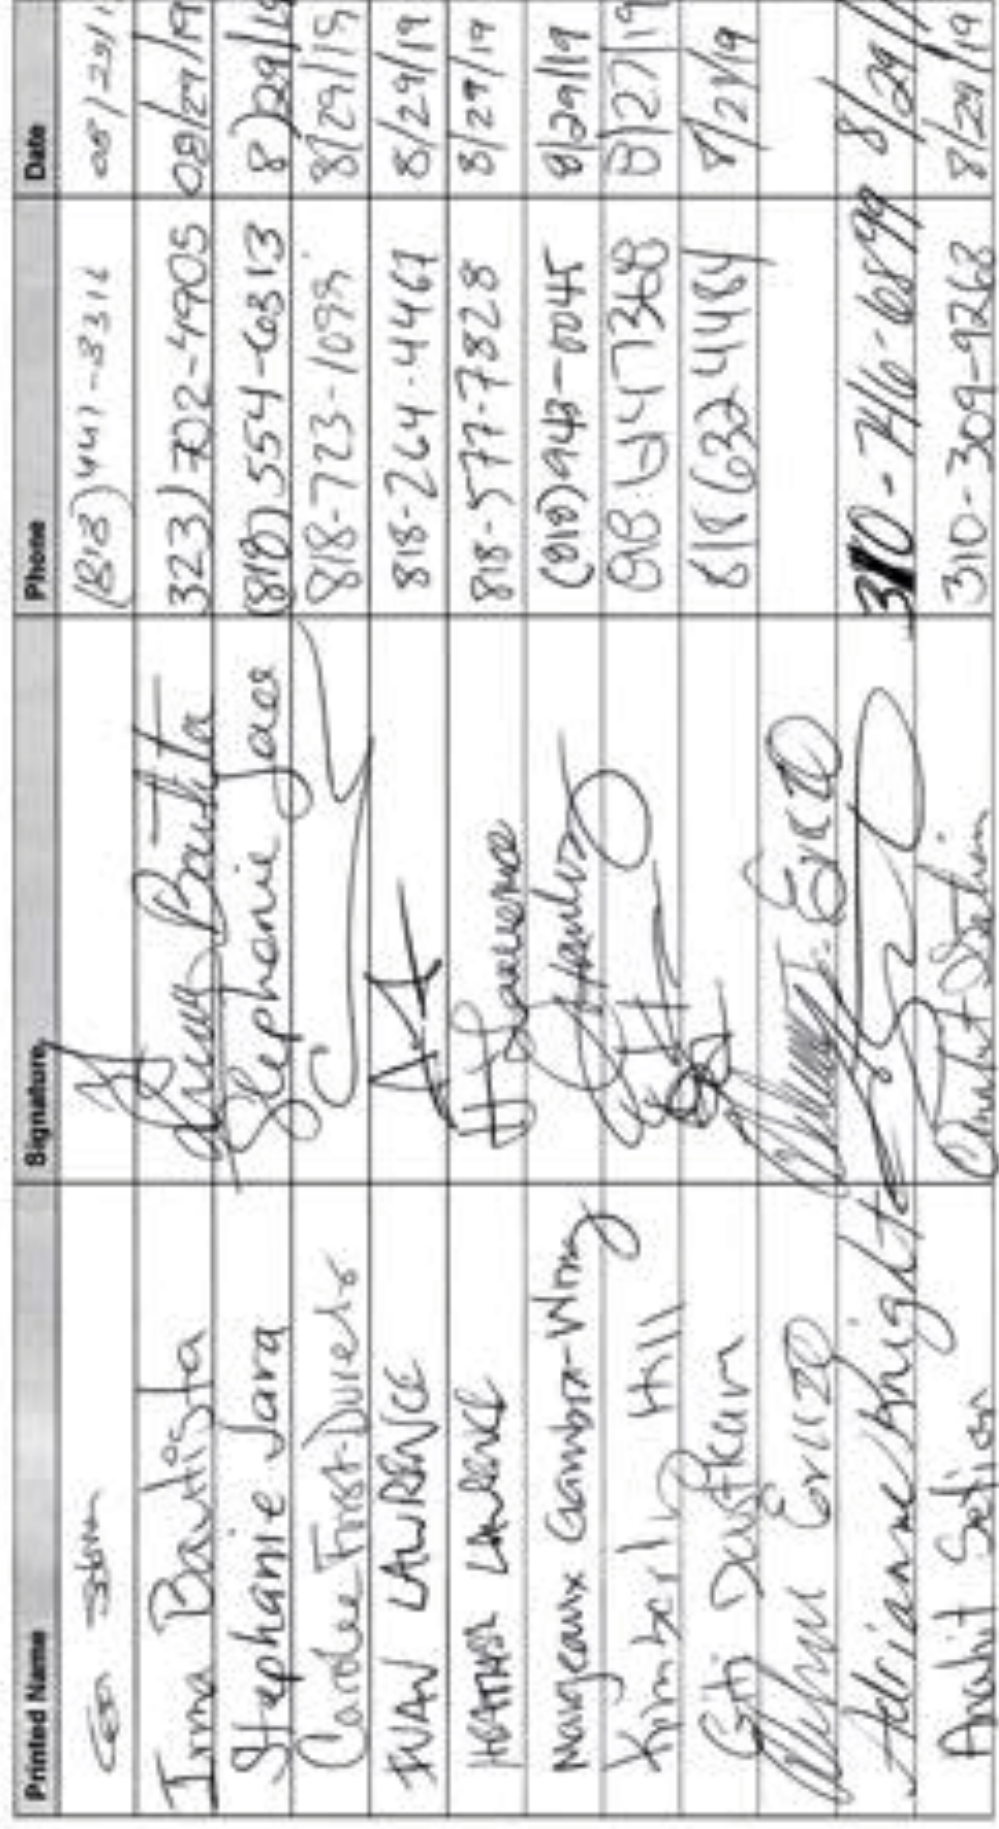 Printed Name Signature Phone Date
(818) 441-3316 08/29/1
Irma Bautista Irma Bautista 323) 702-4905 08/29/19
Stephanie Jara Stephanie Jara (818) 554-6313 8/29/19
Carolee First-Durelr 818-723-1099 8/29/19
IVAN LAWRENCE 818-264-4467 8/29/19
HEATHER LAWRENCE H Lawrence 818-577-7828 8/29/19
Margeaux Gamboa-Wong (818) 943-0045 8/29/19
Kimberly Hill 818 647 7368 8/27/19
Giti Dastkun 818 632 4484 8/29/19
Erwizo
Adrianne Knight 310-746-6899 8/29/1
Anahit Setian Anahit Setian 310-309-9268 8/29/19